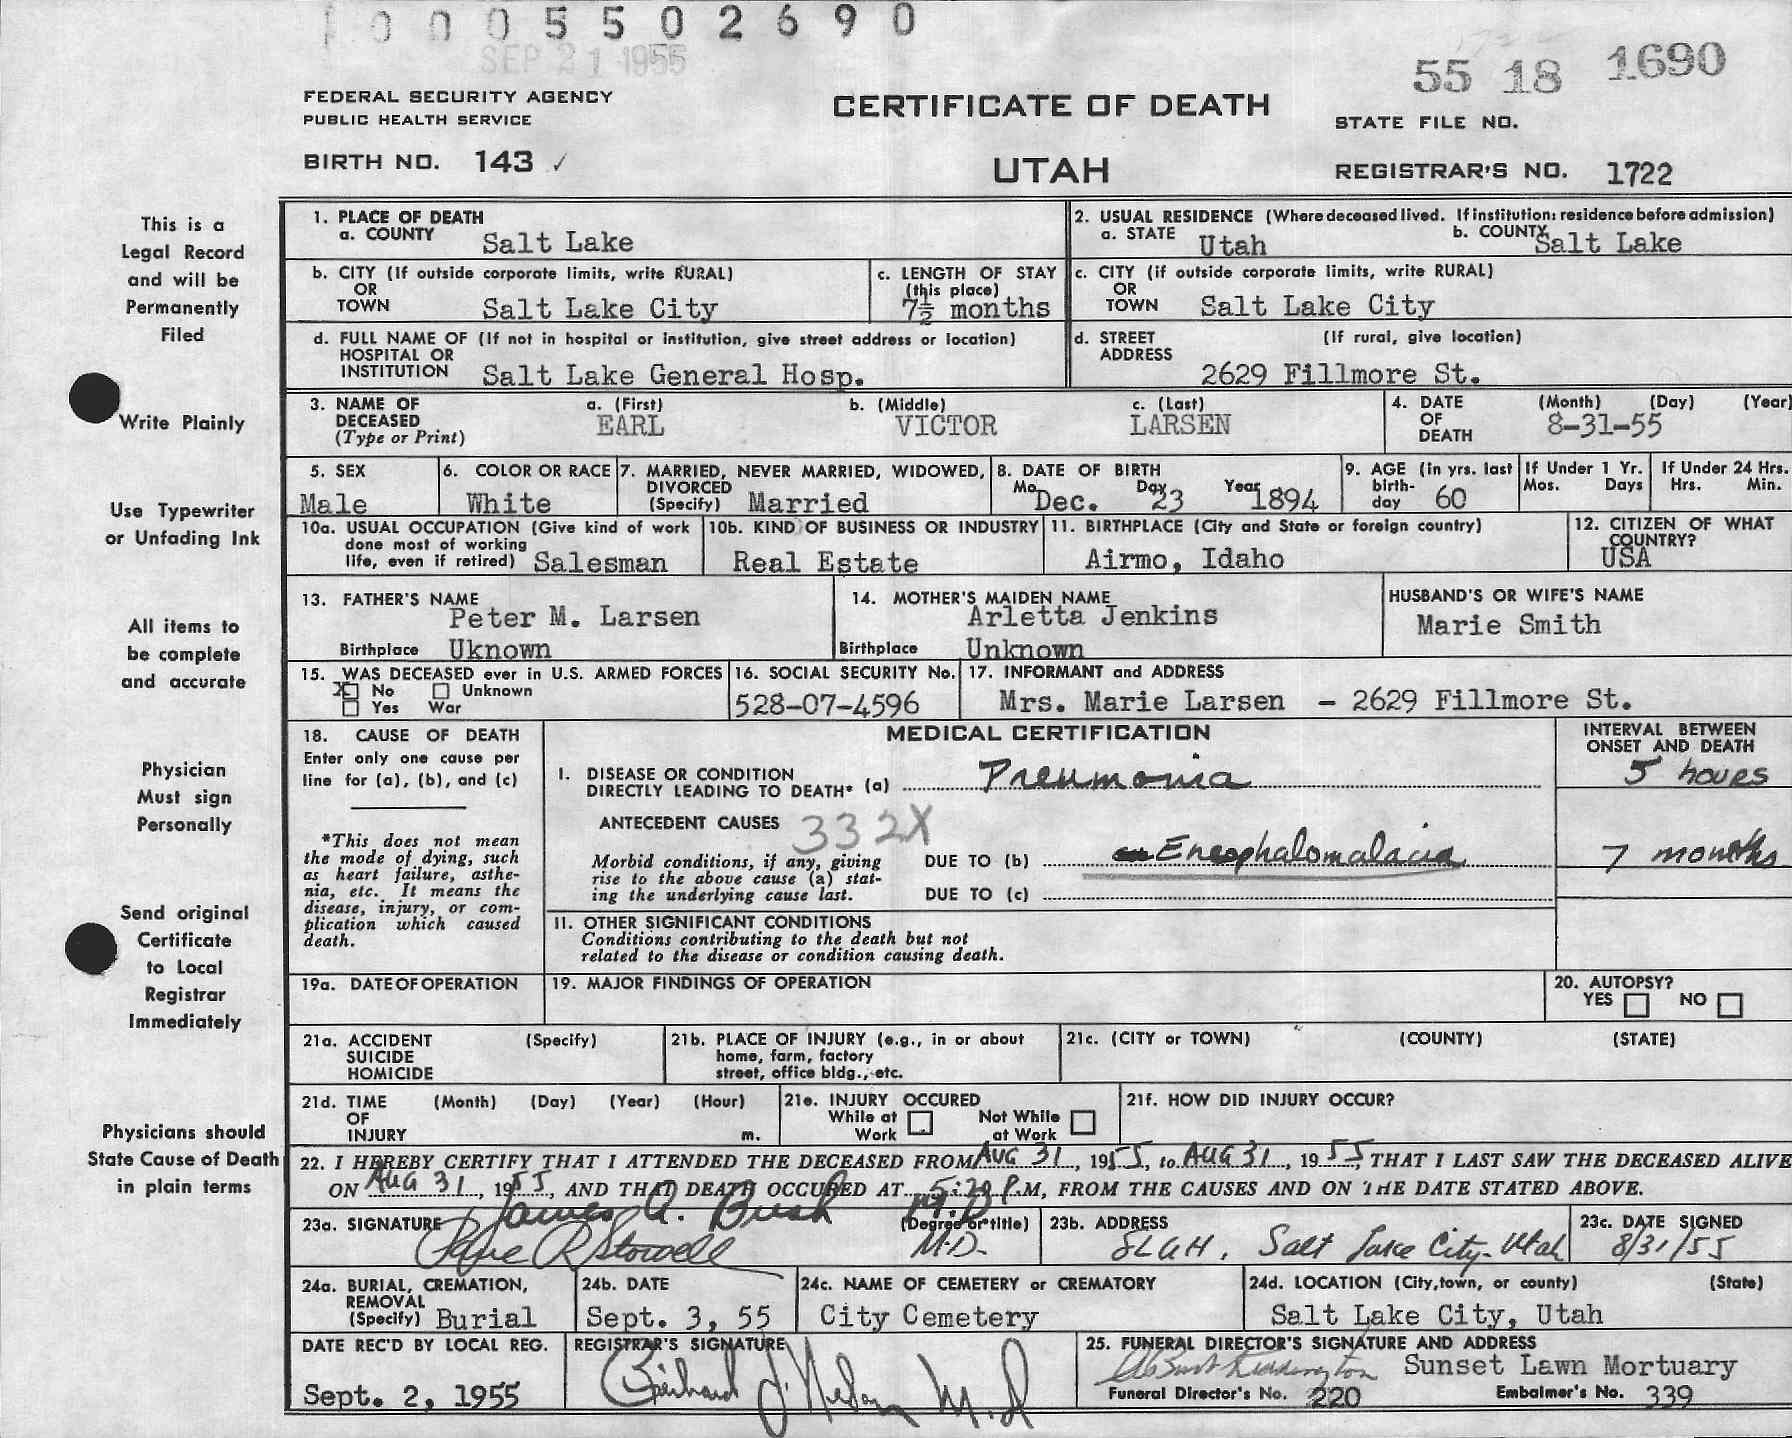 1 0 0 0 5 5 0 2 6 9 0
SEP 21 1955
55 18 1690
FEDERAL SECURITY AGENCY
PUBLIC HEALTH SERVICE
CERTIFICATE OF DEATH
STATE FILE NO.
BIRTH NO. 143 ✓
UTAH
REGISTRAR'S NO. 1722
This is a
Legal Record
and will be
Permanently
Filed
Write Plainly
Use Typewriter
or Unfading Ink
All items to
be complete
and accurate
Physician
Must sign
Personally
Send original
Certificate
to Local
Registrar
Immediately
Physicians should
State Cause of Death
in plain terms
1. PLACE OF DEATH
a. COUNTY Salt Lake
2. USUAL RESIDENCE (Where deceased lived. If institution: residence before admission)
a. STATE Utah b. COUNTY Salt Lake
b. CITY (If outside corporate limits, write RURAL)
OR
TOWN Salt Lake City
c. LENGTH OF STAY
(this place)
7½ months
c. CITY (if outside corporate limits, write RURAL)
OR
TOWN Salt Lake City
d. FULL NAME OF (If not in hospital or institution, give street address or location)
HOSPITAL OR
INSTITUTION Salt Lake General Hosp.
d. STREET (If rural, give location)
ADDRESS
2629 Fillmore St.
3. NAME OF
DECEASED
(Type or Print)
a. (First)
EARL
b. (Middle)
VICTOR
c. (Last)
LARSEN
4. DATE
OF
DEATH
(Month) (Day) (Year)
8-31-55
5. SEX
Male
6. COLOR OR RACE
White
7. MARRIED, NEVER MARRIED, WIDOWED,
DIVORCED
(Specify) Married
8. DATE OF BIRTH
Mo. Dec. Day 23 Year 1894
9. AGE (in yrs. last
birth-
day 60
If Under 1 Yr.
Mos. Days
If Under 24 Hrs.
Hrs. Min.
10a. USUAL OCCUPATION (Give kind of work
done most of working
life, even if retired) Salesman
10b. KIND OF BUSINESS OR INDUSTRY
Real Estate
11. BIRTHPLACE (City and State or foreign country)
Airmo, Idaho
12. CITIZEN OF WHAT
COUNTRY?
USA
13. FATHER'S NAME
Peter M. Larsen
Birthplace Uknown
14. MOTHER'S MAIDEN NAME
Arletta Jenkins
Birthplace Unknown
HUSBAND'S OR WIFE'S NAME
Marie Smith
15. WAS DECEASED ever in U.S. ARMED FORCES
X No Unknown
Yes War
16. SOCIAL SECURITY No.
528-07-4596
17. INFORMANT and ADDRESS
Mrs. Marie Larsen - 2629 Fillmore St.
18. CAUSE OF DEATH
Enter only one cause per
line for (a), (b), and (c)
*This does not mean
the mode of dying, such
as heart failure, asthe-
nia, etc. It means the
disease, injury, or com-
plication which caused
death.
MEDICAL CERTIFICATION
INTERVAL BETWEEN
ONSET AND DEATH
I. DISEASE OR CONDITION
DIRECTLY LEADING TO DEATH* (a) Pneumonia 5 hours
ANTECEDENT CAUSES 332X
Morbid conditions, if any, giving
rise to the above cause (a) stat-
ing the underlying cause last.
DUE TO (b) Encephalomalacia 7 months
DUE TO (c)
II. OTHER SIGNIFICANT CONDITIONS
Conditions contributing to the death but not
related to the disease or condition causing death.
19a. DATE OF OPERATION
19. MAJOR FINDINGS OF OPERATION
20. AUTOPSY?
YES NO
21a. ACCIDENT (Specify)
SUICIDE
HOMICIDE
21b. PLACE OF INJURY (e.g., in or about
home, farm, factory
street, office bldg., etc.
21c. (CITY or TOWN) (COUNTY) (STATE)
21d. TIME (Month) (Day) (Year) (Hour)
OF
INJURY m.
21e. INJURY OCCURED
While at Not While
Work at Work
21f. HOW DID INJURY OCCUR?
22. I HEREBY CERTIFY THAT I ATTENDED THE DECEASED FROM AUG 31, 1955, to AUG 31, 1955, THAT I LAST SAW THE DECEASED ALIVE
ON AUG 31, 1955, AND THAT DEATH OCCURED AT 5:20 P.M, FROM THE CAUSES AND ON THE DATE STATED ABOVE.
James A. Bush M.D.
23a. SIGNATURE (Degree or title)
Stowell M.D.
23b. ADDRESS
SLGH, Salt Lake City-Utah
23c. DATE SIGNED
8/31/55
24a. BURIAL, CREMATION,
REMOVAL
(Specify) Burial
24b. DATE
Sept. 3, 55
24c. NAME OF CEMETERY or CREMATORY
City Cemetery
24d. LOCATION (City, town, or county) (State)
Salt Lake City, Utah
DATE REC'D BY LOCAL REG.
Sept. 2, 1955
REGISTRAR'S SIGNATURE
M.D
25. FUNERAL DIRECTOR'S SIGNATURE AND ADDRESS
Sunset Lawn Mortuary
Funeral Director's No. 220 Embalmer's No. 339